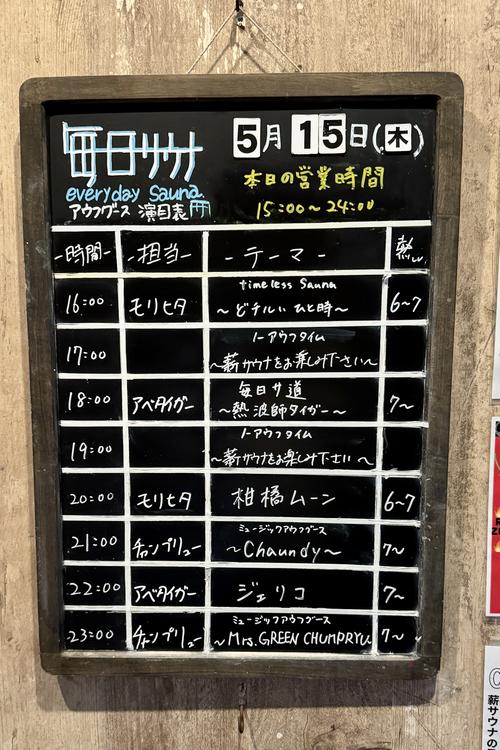 毎日サウナ
5月15日(木)
everyday Sauna.
本日の営業時間
アウフグース 演目表
15:00～24:00
-時間- -担当- -テーマ- 熱
16:00 モリヒタ timeless Sauna 6~7
～どチルいひと時～
17:00 ノーアウフタイム
～薪サウナをお楽しみ下さい～
18:00 アベタイガー 毎日サ道 7~
～熱波師タイガー～
19:00 ノーアウフタイム
～薪サウナをお楽しみ下さい～
20:00 モリヒタ 柑橘ムーン 6~7
21:00 チャンプリュー ミュージックアウフグース 7~
～Chaundy～
22:00 アベタイガー ジェリコ 7~
23:00 チャンプリュー ミュージックアウフグース 7~
～Mrs.GREEN CHUMPRYU
薪サウナの